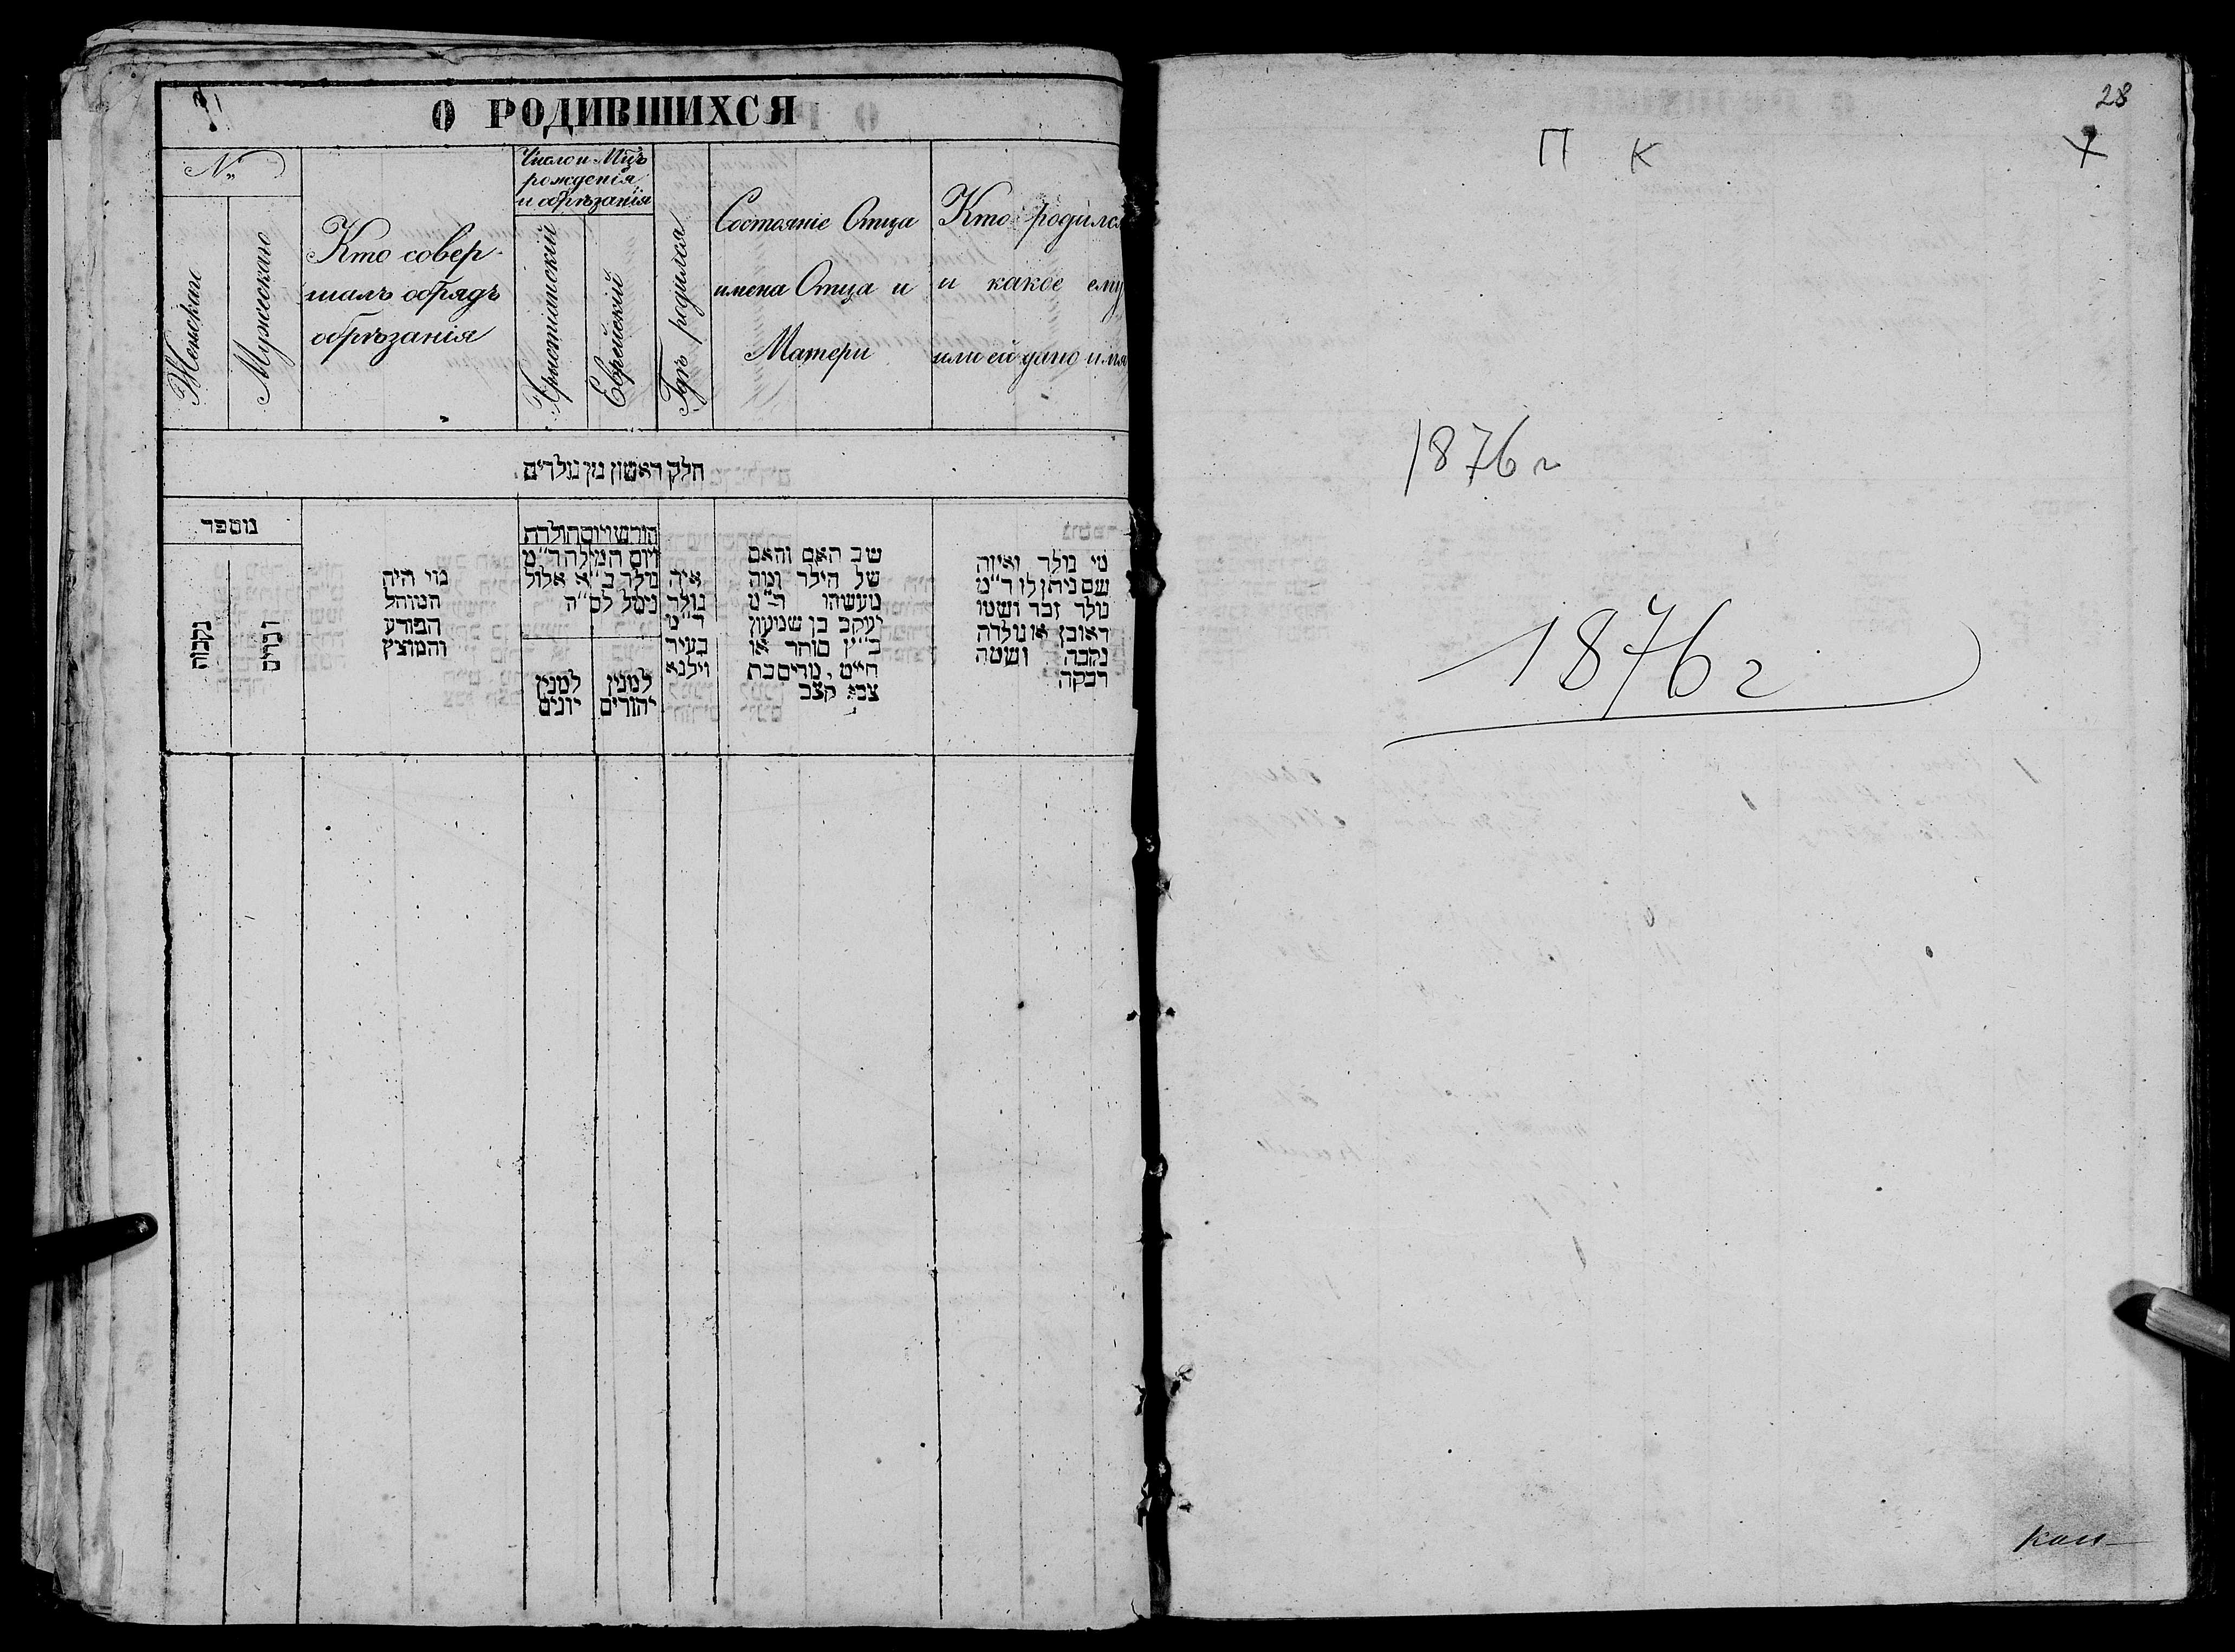 О РОДИВШИХСЯ
№
Женскаго
Мужескаго
Кто совер-
шалъ обрядъ
обрѣзанія
Число и Мцъ
рожденія
и обрѣзанія
Христіанскій
Еврейскій
Гдѣ родился
Состояніе Отца
имена Отца и
Матери
Кто родился
и какое ему
или ей дано имя
חלק ראשון מן נולדים
מספר
נקבות
זכרים
מי היה
המוהל
הפורע
והמוצץ
חודש ויום תולדת
ויום המילה ד״מ
נולד ב״א אלול
נימל לס״ה
למנין
יונים
למנין
יהודים
איה
נולד
ד״מ
בעיר
ווילנא
שב האם והאם
של הילד ומה
מעשהו ד״מ
יעקב בן שמעון
כ״ץ סוחר או
חייט, מרים בת
צבי קצב
מי נולד ואיזה
שם ניתן לו ד״מ
נולד זכר ושמו
ראובן או נולדה
נקבה ושמה
רבקה
28
П К
1876 г
1876 г